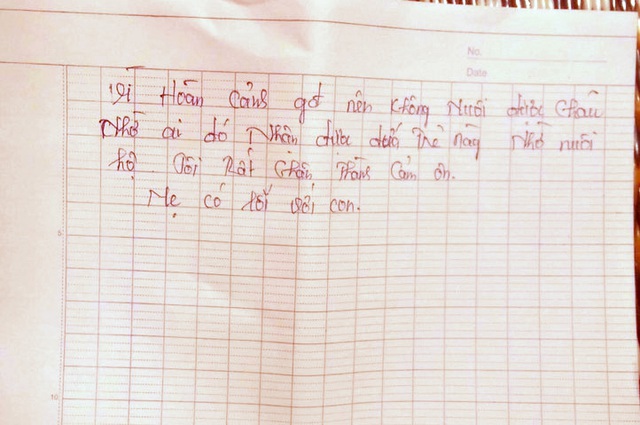 No.
Date
Vì Hoàn Cảnh gđ nên Không Nuôi được Cháu
Nhờ ai đó Nhận được đứa Trẻ này Nhờ nuôi
hộ. Tôi Rất Chân Thành Cảm ơn.
Mẹ có lỗi với con.
5
10